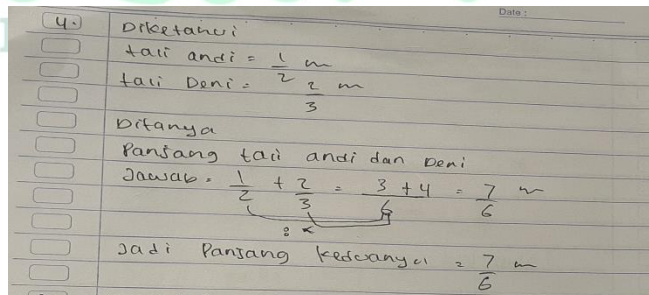 Date :
4.) Diketahui
tali andi = 1/2 m
tali Deni = 2/3 m
Ditanya
Panjang tali andi dan Deni
Jawab = 1/2 + 2/3 = 3 + 4/6 = 7/6 m
: x
Jadi Panjang keduanya = 7/6 m